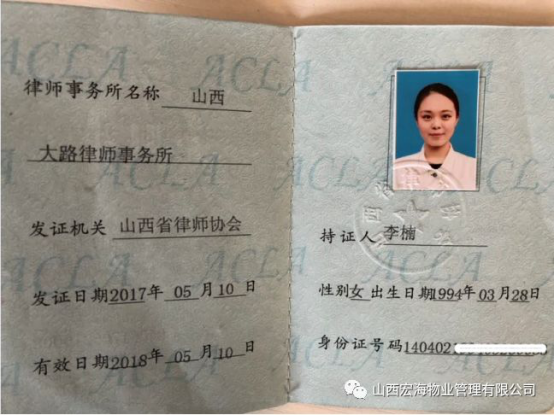 律师事务所名称 山西
大路律师事务所
发证机关 山西省律师协会
发证日期2017年 05 月 10 日
有效日期2018年 05 月 10 日
ACLA
ACLA
ACLA
ACLA
持证人 李楠
性别 女 出生日期1994年 03 月 28 日
身份证号码140402
山西宏海物业管理有限公司